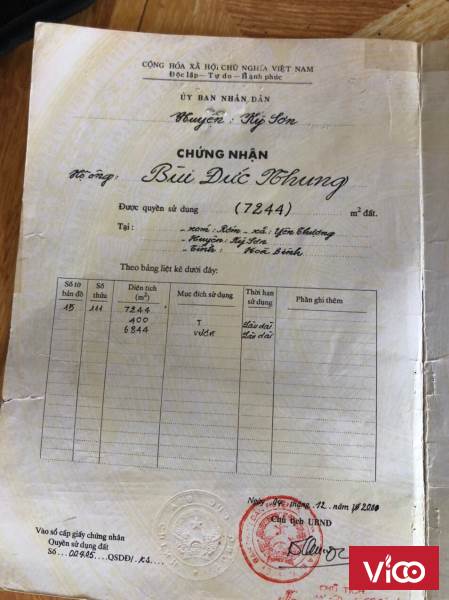 CỘNG HÒA XÃ HỘI CHỦ NGHĨA VIỆT NAM
Độc lập — Tự do — Hạnh phúc
ỦY BAN NHÂN DÂN
Huyện: Kỳ Sơn
CHỨNG NHẬN
Hộ ông: Bùi Đức Nhung
Được quyền sử dụng (7244) m² đất.
Tại : - xóm: Rón - xã: Yên Thượng
- Huyện: Kỳ Sơn
- Tỉnh: Hoà Bình
Theo bảng liệt kê dưới đây:
Số tờ bản đồ Số thửa Diện tích (m²) Mục đích sử dụng Thời hạn sử dụng Phần ghi thêm
15 111 7244
400 T Lâu dài
6844 vườn Lâu dài
Ngày 04 tháng 12 năm 2000
Chủ tịch UBND
Vào sổ cấp giấy chứng nhận
Quyền sử dụng đất
Số 00905 QSDĐ/
CHỦ TỊCH
ViCO